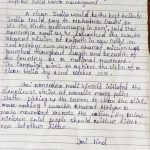 improve solid waste management
A clean India would be the best tribute
India could pay to Mahatma Gandhi on
his 150th birth anniversary in 2019," said Shri
Narendra Modi as he launched the Swachh
Bharat Mission at Rajpath in New Delhi. On
2nd October 2014, Swachh Bharat Mission was
launched throughout length and breadth of
the country as a national movement.
The campaign aims to achieve the vision of a
clean India by 2nd October 2019.
Shri Narendra Modi himself initiated the
cleanliness drive at Mandir Marg Police
Station. Picking up the broom to clean the dirt,
making Swachh Bharat Abhiyan a
mass movement across the nation, the Prime
Minister said people should neither litter,
nor let others litter.
Jai Hind